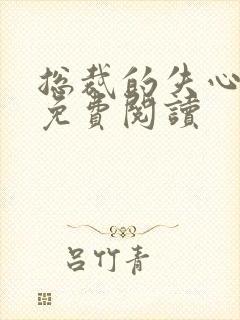 总裁的失心
免費閱讀
吕竹青